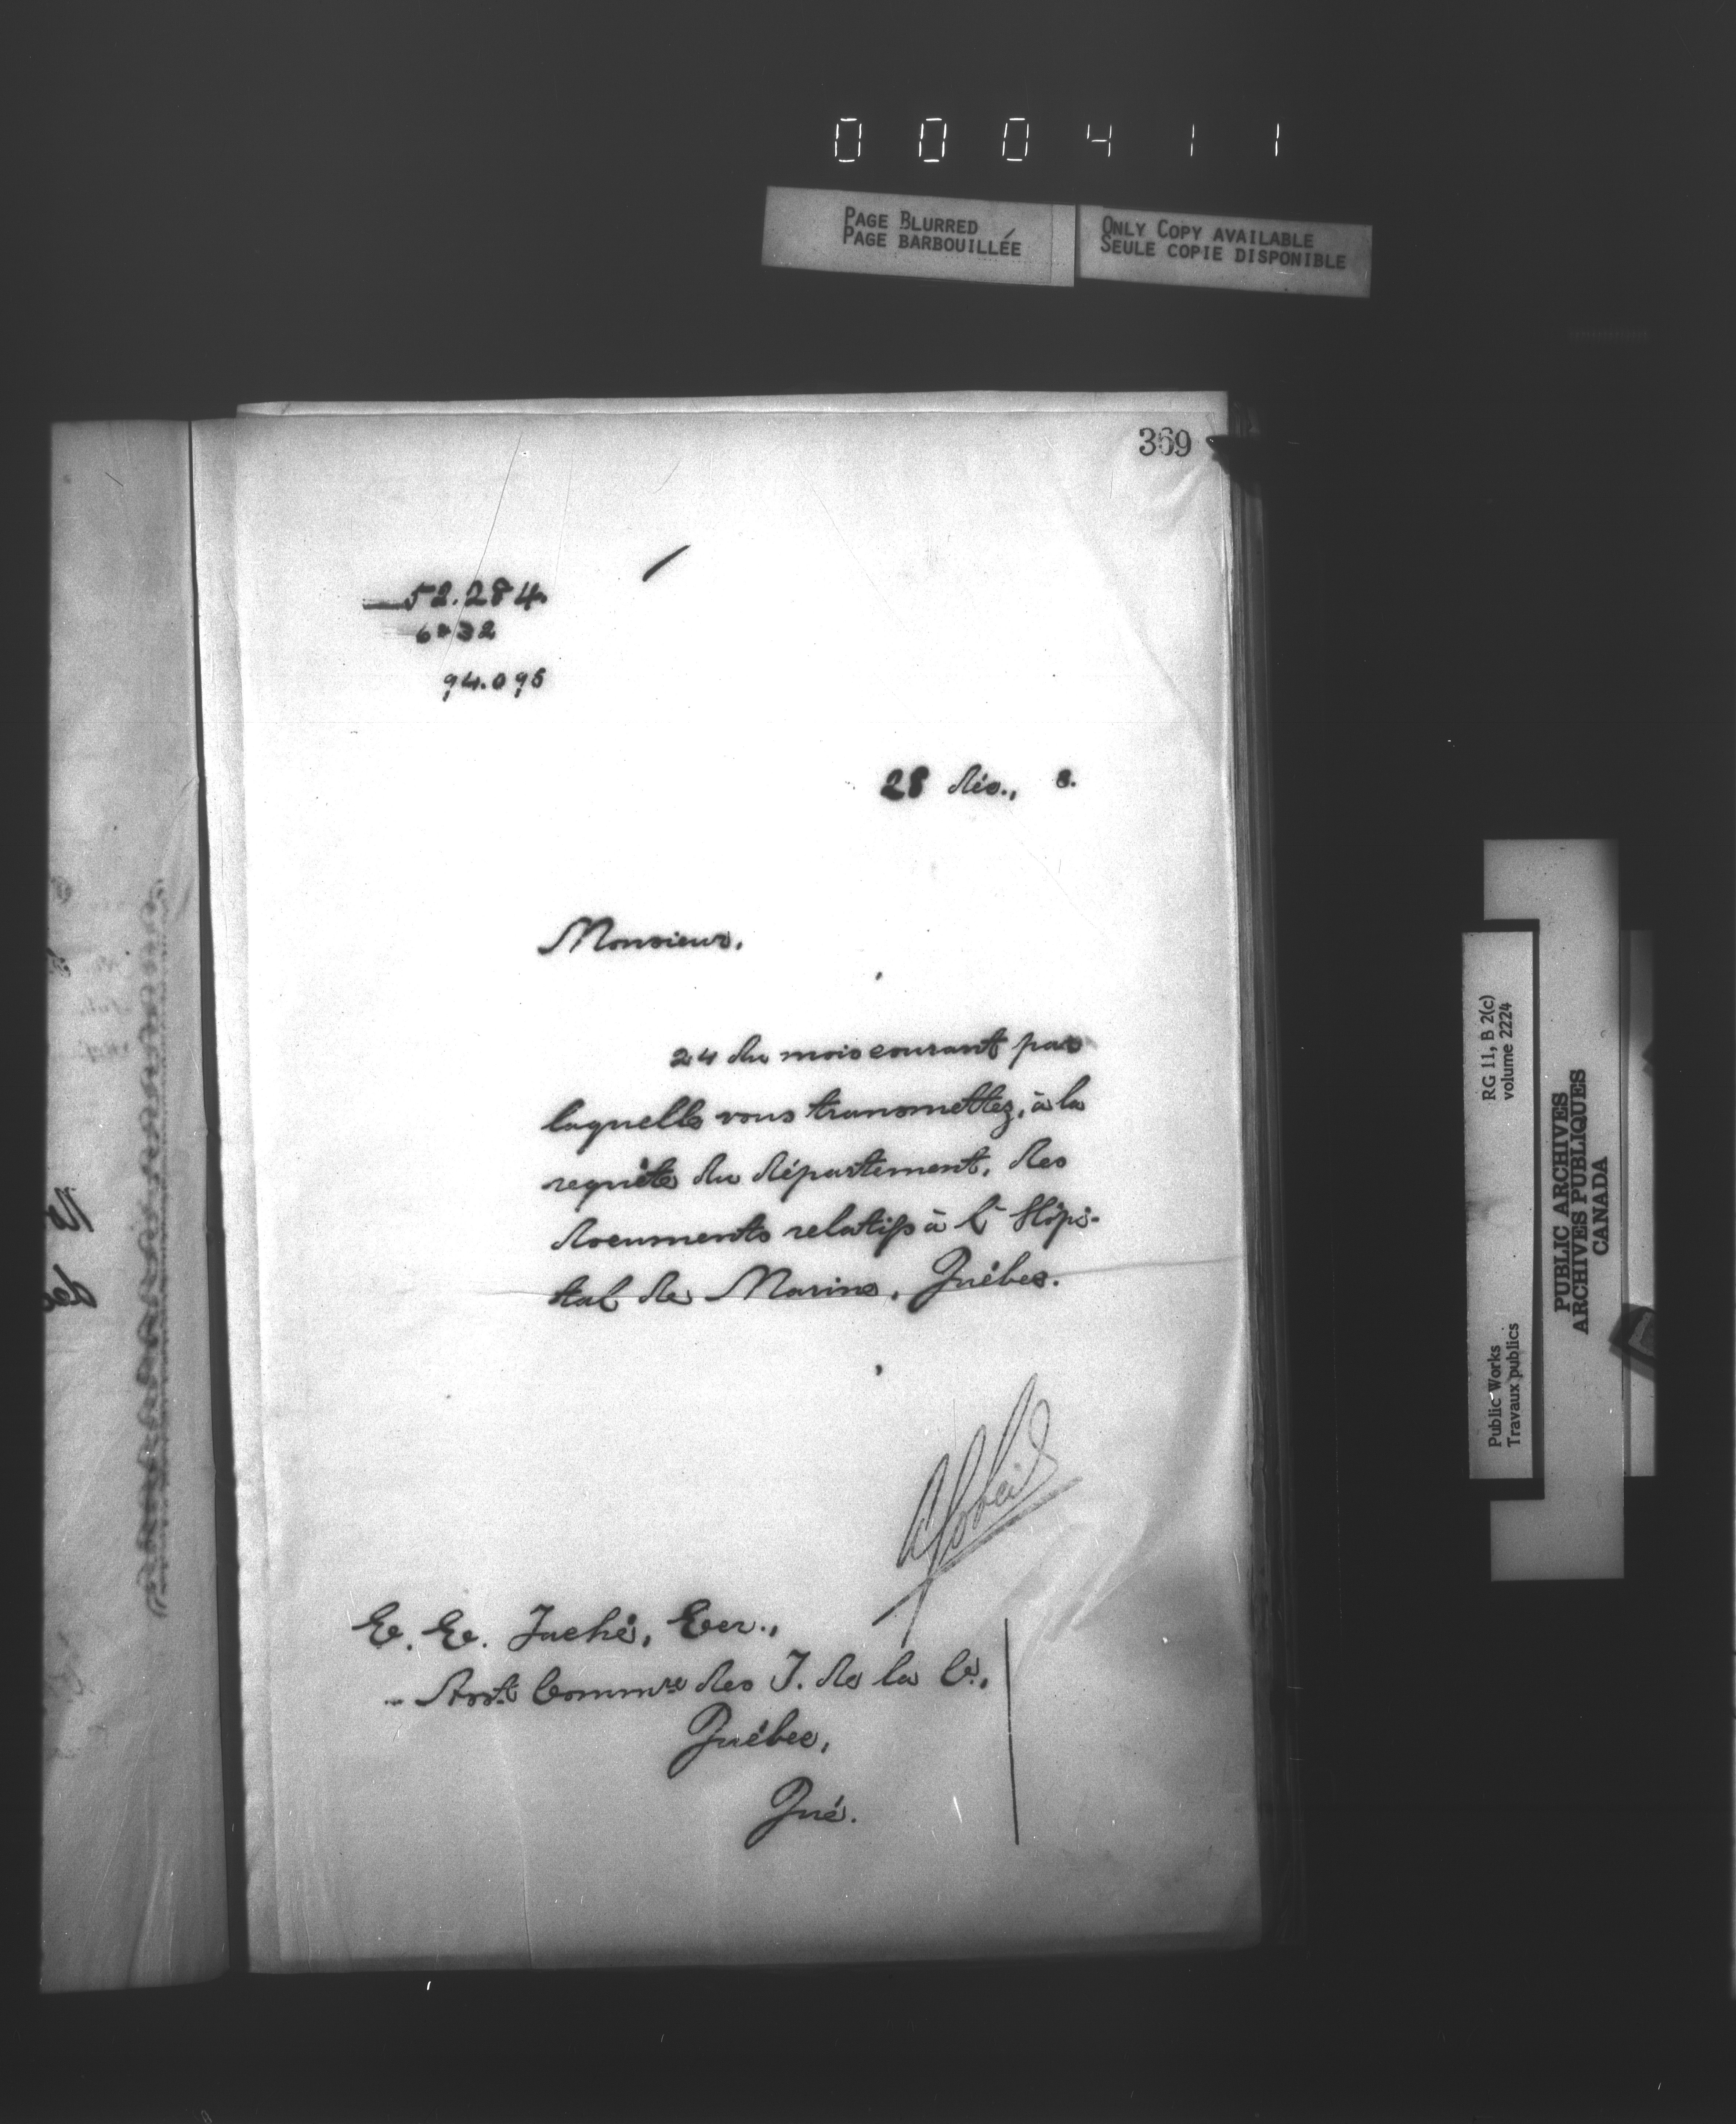 000411
PAGE BLURRED
PAGE BARBOUILLÉE
ONLY COPY AVAILABLE
SEULE COPIE DISPONIBLE
369
52.284
94.095
28 déc., 8.
Monsieur,
24 du mois courant par
laquelle vous transmettez, à la
requête du département, des
documents relatifs à l'Hôpi-
tal de Marine, Québec.
E. E. Taché, Ecr.,
Asst. Commre des T. de la C.,
Québec,
Qué.
RG 11, B 2(c)
volume 2224
Public Works
Travaux publics
PUBLIC ARCHIVES
ARCHIVES PUBLIQUES
CANADA